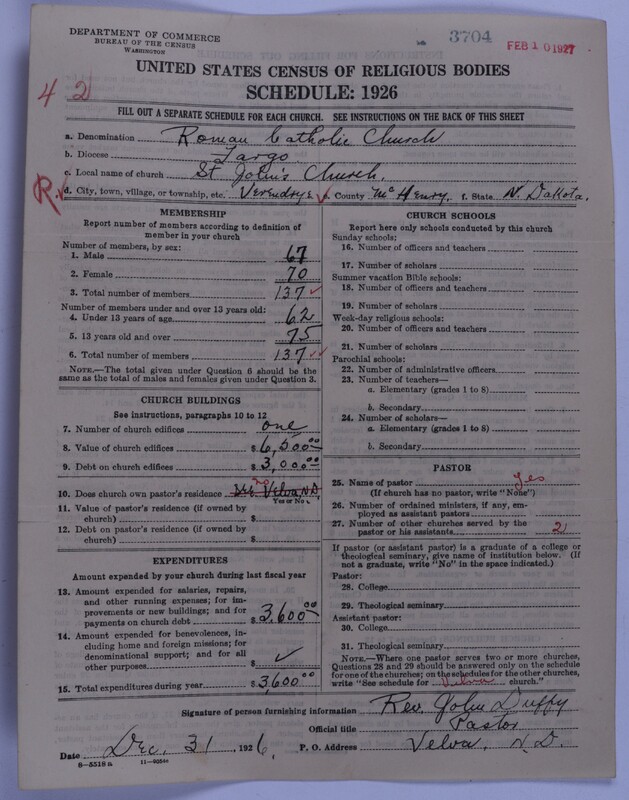 DEPARTMENT OF COMMERCE
BUREAU OF THE CENSUS
WASHINGTON
3704
FEB 10 1927
UNITED STATES CENSUS OF RELIGIOUS BODIES
SCHEDULE: 1926
42
FILL OUT A SEPARATE SCHEDULE FOR EACH CHURCH. SEE INSTRUCTIONS ON THE BACK OF THIS SHEET
a. Denomination Roman Catholic Church
b. Diocese Fargo
c. Local name of church St John's Church.
R. d. City, town, village, or township, etc. Verendrye e. County McHenry, f. State N. Dakota.
MEMBERSHIP
Report number of members according to definition of
member in your church
Number of members, by sex:
1. Male 67
2. Female 70
3. Total number of members 137
Number of members under and over 13 years old:
4. Under 13 years of age 62
5. 13 years old and over 75
6. Total number of members 137
NOTE.—The total given under Question 6 should be
the same as the total of males and females given under Question 3.
CHURCH BUILDINGS
See instructions, paragraphs 10 to 12
7. Number of church edifices one
8. Value of church edifices $6,500.00
9. Debt on church edifices $3,000.00
10. Does church own pastor's residence no Velva, N.D.
Yes or No
11. Value of pastor's residence (if owned by
church) $
12. Debt on pastor's residence (if owned by
church) $
EXPENDITURES
Amount expended by your church during last fiscal year
13. Amount expended for salaries, repairs,
and other running expenses; for im-
provements or new buildings; and for
payments on church debt $3,600.00
14. Amount expended for benevolences, in-
cluding home and foreign missions; for
denominational support; and for all
other purposes $ ✓
15. Total expenditures during year $3,600.00
CHURCH SCHOOLS
Report here only schools conducted by this church
Sunday schools:
16. Number of officers and teachers
17. Number of scholars
Summer vacation Bible schools:
18. Number of officers and teachers
19. Number of scholars
Week-day religious schools:
20. Number of officers and teachers
21. Number of scholars
Parochial schools:
22. Number of administrative officers
23. Number of teachers—
a. Elementary (grades 1 to 8)
b. Secondary
24. Number of scholars—
a. Elementary (grades 1 to 8)
b. Secondary
PASTOR
25. Name of pastor yes
(If church has no pastor, write "None")
26. Number of ordained ministers, if any, em-
ployed as assistant pastors
27. Number of other churches served by the
pastor or his assistants 2
If pastor (or assistant pastor) is a graduate of a college or
theological seminary, give name of institution below. (If
not a graduate, write "No" in the space indicated.)
Pastor:
28. College
29. Theological seminary
Assistant pastor:
30. College
31. Theological seminary
NOTE.—Where one pastor serves two or more churches,
Questions 28 and 29 should be answered only on the schedule
for one of the churches; on the schedules for the other churches,
write "See schedule for Velva church."
Signature of person furnishing information Rev John Duffy
Official title Pastor
Date Dec. 31, 1926. P. O. Address Velva, N.D.
8—5518 a